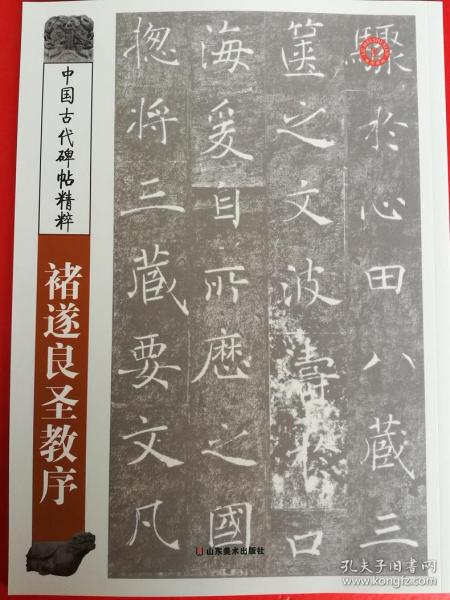 中国古代碑帖精粹
褚遂良圣教序
驟於心田八藏三
箧之文波濤於口
海爰自所歷之國
揔将三藏要文凡
山东美术出版社
孔夫子旧书网
www.kongfz.com